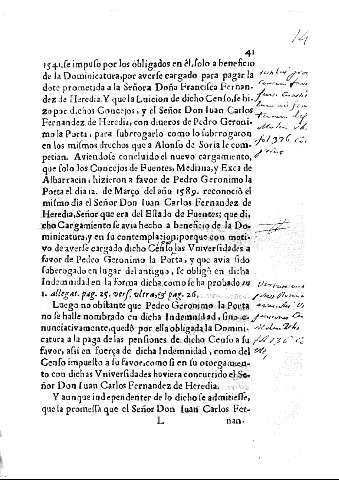 14
41
1541. se impuso por los obligados en èl, solo a beneficio
de la Dominicatura, por averse cargado para pagar la
dote prometida a la Señora Doña Francisca Fernan-
dez de Heredia. Y que la Luicion de dicho Censo, se hi-
zo por dichos Concejos, y el Señor Don Iuan Carlos
Fernandez de Heredia, con dineros de Pedro Geroni-
mo la Porta, para subrogarlo como lo subrogaron
en los mismos drechos que a Alonso de Soria le com-
petian. Aviendose concluido el nuevo cargamiento,
que solo los Concejos de Fuentes, Mediana, y Exea de
Albarracin, hizieron a favor de Pedro Geronimo la
Porta el dia 12. de Março del año 1589. reconociò el
mismo dia el Señor Don Iuan Carlos Fernandez de
Heredia, Señor que era del Estado de Fuentes; que di-
cho Cargamiento se avia hecho a beneficio de la Do-
minicatura, y en su contemplacion; porque con moti-
vo de averse cargado dicho Censo las Vniversidades a
favor de Pedro Geronimo la Porta, y que avia sido
subrogado en lugar del antiguo, se obligò en dicha
Indemnidad en la forma dicha, como se ha probado in
1. allegat. pag. 25. vers. ultra, & pag. 26.
Luego no obstante que Pedro Geronimo la Porta
no se halle nombrado en dicha Indemnidad, sino e-
nunciativamente, quedò por ella obligada la Domini-
catura a la paga de las pensiones de dicho Censo a su
favor, assi en fuerça de dicha Indemnidad, como del
Censo impuesto a su favor, como si en su otorgamien-
to con dichas Vniversidades huviera concurrido el Se-
ñor Don Iuan Carlos Fernandez de Heredia.
Y aunque independenter de lo dicho se admitiesse,
que la promessa que el Señor Don Iuan Carlos Fer-
L nan-